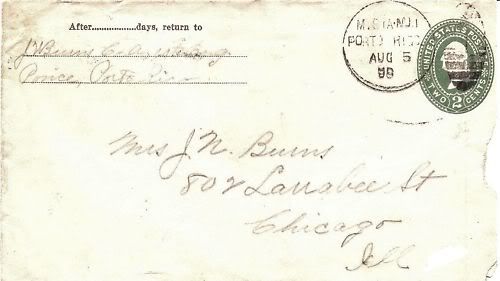 After..................days, return to
J N Burns
Ponce, Porto Rico
PORTO RICO
AUG 5
UNITED STATES POSTAGE
TWO 2 CENTS
Mrs J. N. Burns
802 Larrabee St
Chicago
Ill